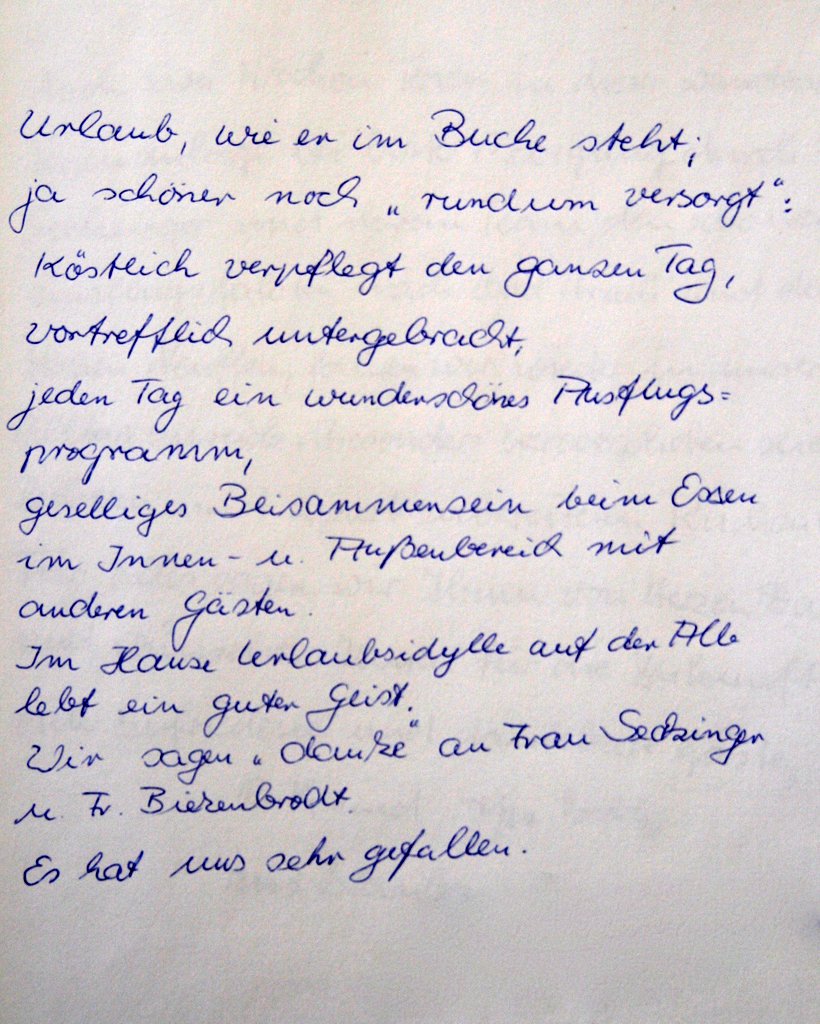 Urlaub, wie er im Buche steht;
ja schöner noch „rundum versorgt“:
Köstlich verpflegt den ganzen Tag,
vortrefflich untergebracht,
jeden Tag ein wunderschönes Ausflugs=
programm,
geselliges Beisammensein beim Essen
im Innen- u. Außenbereich mit
anderen Gästen.
Im Hause Urlaubsidylle auf der Alb
lebt ein guter Geist.
Wir sagen „danke“ an Frau
u. Fr.
Es hat uns sehr gefallen.